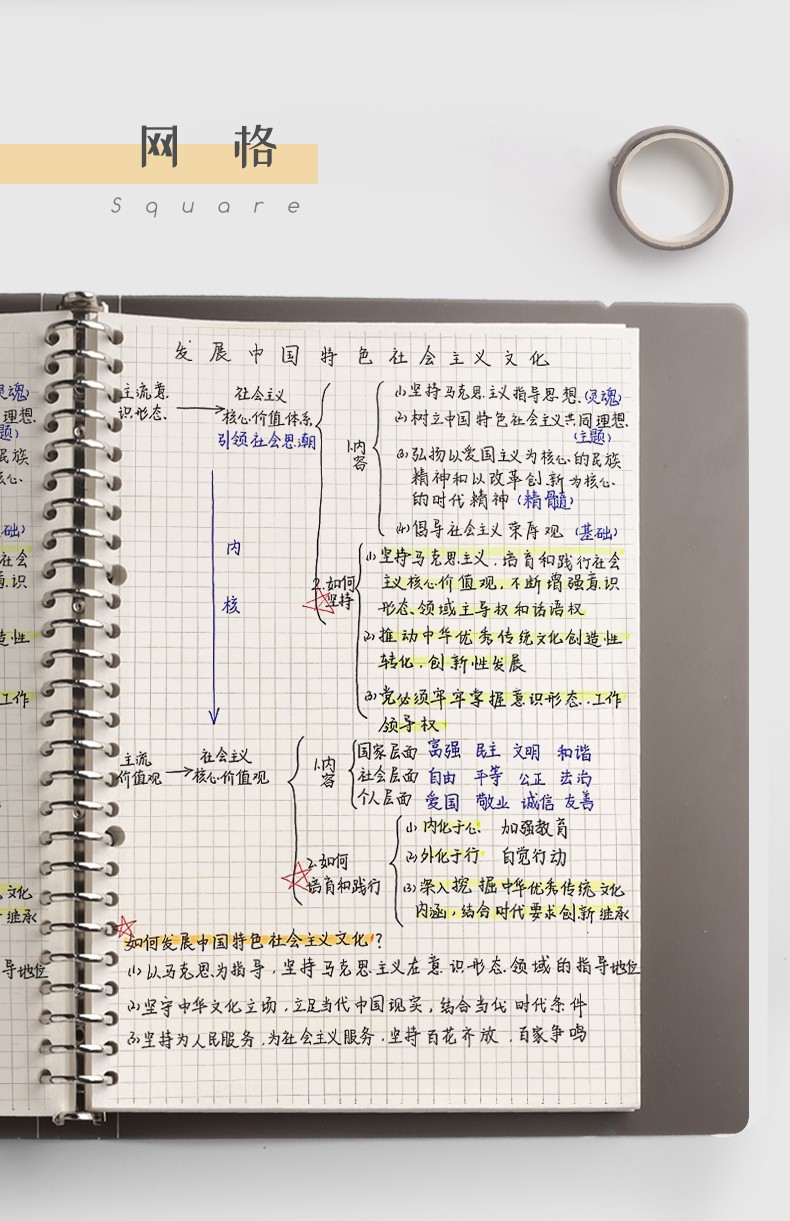 网格
Square
发展中国特色社会主义文化
主流意识形态
社会主义核心价值体系
引领社会思潮
1.内容
(1)坚持马克思主义指导思想(灵魂)
(2)树立中国特色社会主义共同理想
(主题)
(3)弘扬以爱国主义为核心的民族
精神和以改革创新为核心
的时代精神(精髓)
(4)倡导社会主义荣辱观(基础)
2.如何坚持
(1)坚持马克思主义,培育和践行社会
主义核心价值观,不断增强意识
形态领域主导权和话语权
(2)推动中华优秀传统文化创造性
转化,创新性发展
(3)党必须牢牢掌握意识形态工作
领导权
内核
主流价值观
社会主义核心价值观
1.内容
国家层面 富强 民主 文明 和谐
社会层面 自由 平等 公正 法治
个人层面 爱国 敬业 诚信 友善
2.如何
培育和践行
(1)内化于心 加强教育
(2)外化于行 自觉行动
(3)深入挖掘中华优秀传统文化
内涵,结合时代要求创新继承
如何发展中国特色社会主义文化?
(1)以马克思为指导,坚持马克思主义在意识形态领域的指导地位
(2)坚守中华文化立场,立足当代中国现实,结合当代时代条件
(3)坚持为人民服务,为社会主义服务,坚持百花齐放,百家争鸣
灵魂)
理想
题)
民族
核心
础)
社会
识
造性
工作
文化
继承
导地位